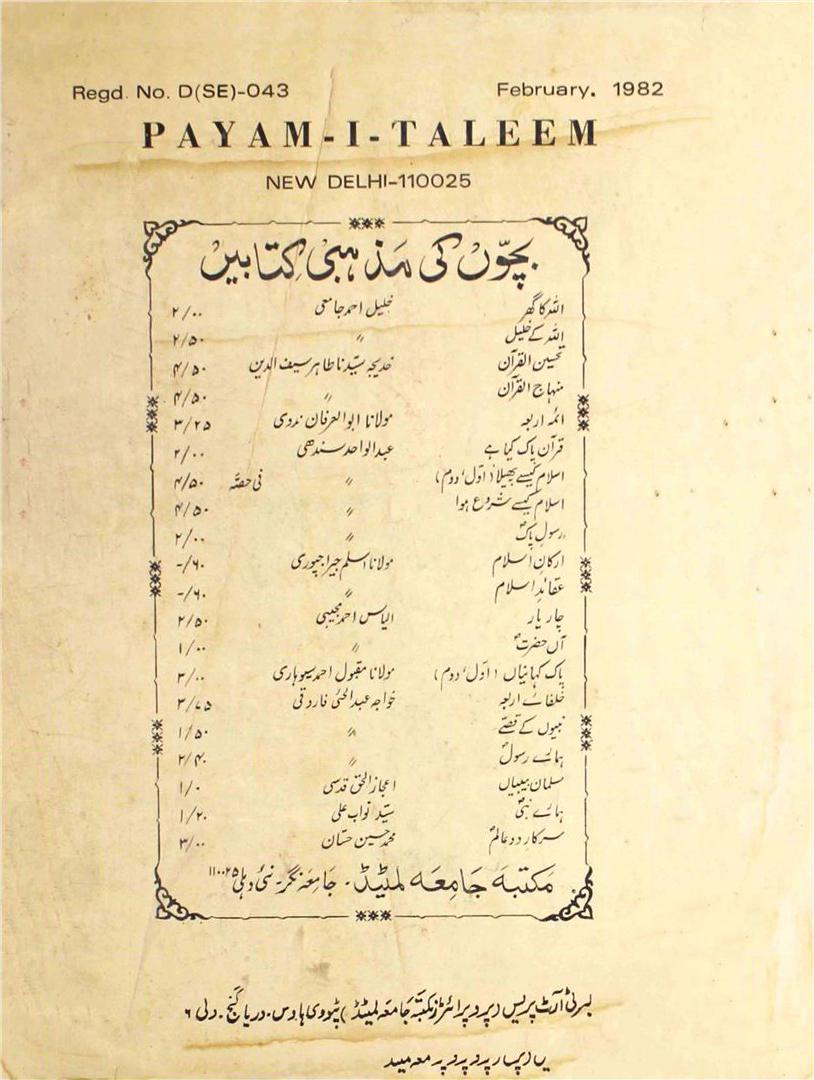 Regd. No. D(SE)-043 February. 1982
PAYAM-I-TALEEM
NEW DELHI-110025
بچّوں کی مذہبی کتابیں
اللہ کا گھر خلیل احمد جامعی ۲/۰۰
اللہ کے خلیل " ۲/۵۰
تحسین القرآن خدیجہ سیّدنا طاہر سیف الدین ۴/۵۰
منہاج القرآن " ۴/۵۰
ائمہ اربعہ مولانا ابوالعرفان ندوی ۳/۲۵
قرآن پاک کیا ہے عبدالواحد سندھی ۲/۰۰
اسلام کیسے پھیلا (اوّل، دوم) " فی حصّہ ۴/۵۰
اسلام کیسے شروع ہوا " ۴/۵۰
رسول پاکؐ " ۲/۰۰
ارکان اسلام مولانا اسلم جیراجپوری -/۶۰
عقائد اسلام " -/۶۰
چار یار الیاس احمد مجیبی ۲/۵۰
آں حضرتؐ " ۱/۰۰
پاک کہانیاں (اوّل، دوم) مولانا مقبول احمد سیوہاری ۳/۰۰
خلفائے اربعہ خواجہ عبدالحئی فاروقی ۳/۷۵
نبیوں کے قصّے " ۱/۵۰
ہمارے رسولؐ " ۲/۴۰
مسلمان بیبیاں اعجاز الحق قدسی ۱/۰
ہمارے نبیؐ سیّد نواب علی ۱/۲۰
سرکار دو عالمؐ محمد حسین حسّان ۳/۰۰
مکتبہ جامعہ لمٹیڈ۔ جامعہ نگر۔ نئی دہلی ۱۱۰۰۲۵
لبرٹی آرٹ پریس (پروپرائٹرز مکتبہ جامعہ لمٹیڈ) پٹودی ہاوس۔ دریا گنج۔ دلی ۶